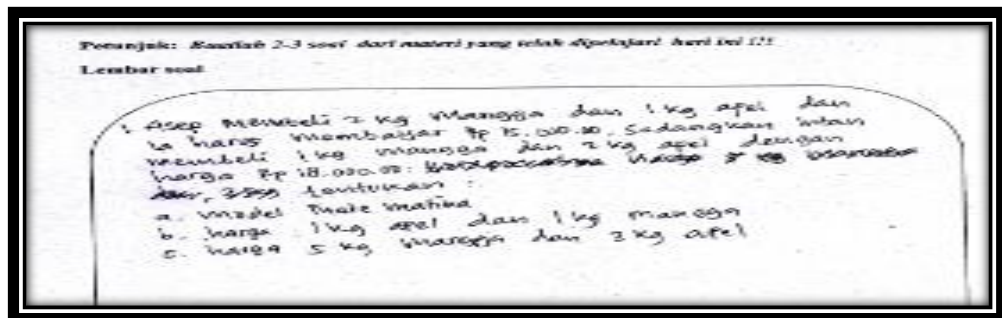 Petunjuk: Buatlah 2-3 soal dari materi yang telah dipelajari hari ini !!!
Lembar soal
1. Asep membeli 2 kg mangga dan 1 kg apel dan
ia harus membayar Rp 15.000.00, sedangkan intan
membeli 1 kg mangga dan 2 kg apel dengan
harga Rp 18.000.00.
tentukan :
a. model matematika
b. harga 1 kg apel dan 1 kg mangga
c. harga 5 kg mangga dan 3 kg apel